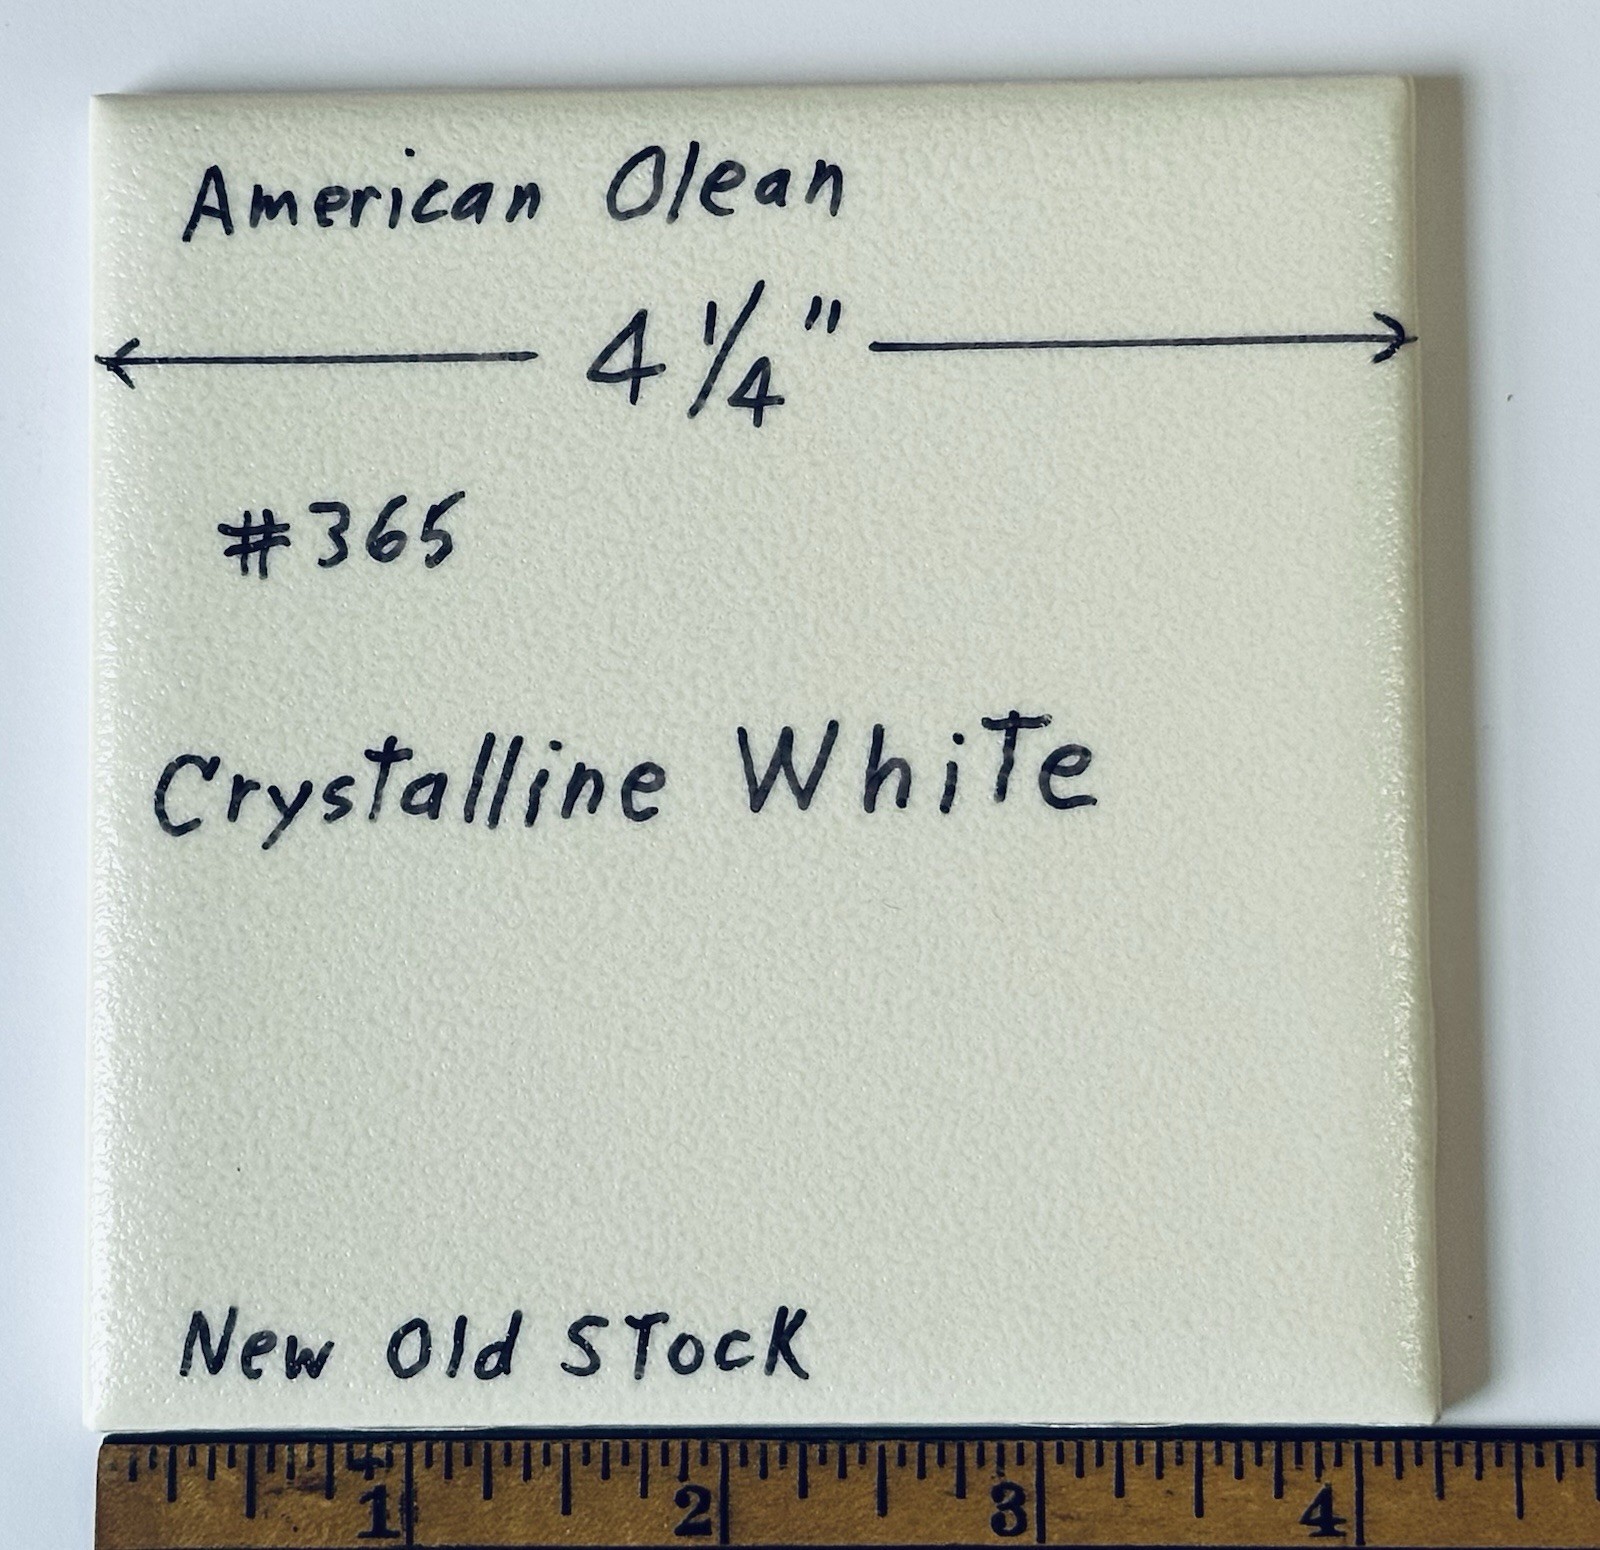 American Olean
4 1/4"
#365
Crystalline White
New Old Stock
1 2 3 4